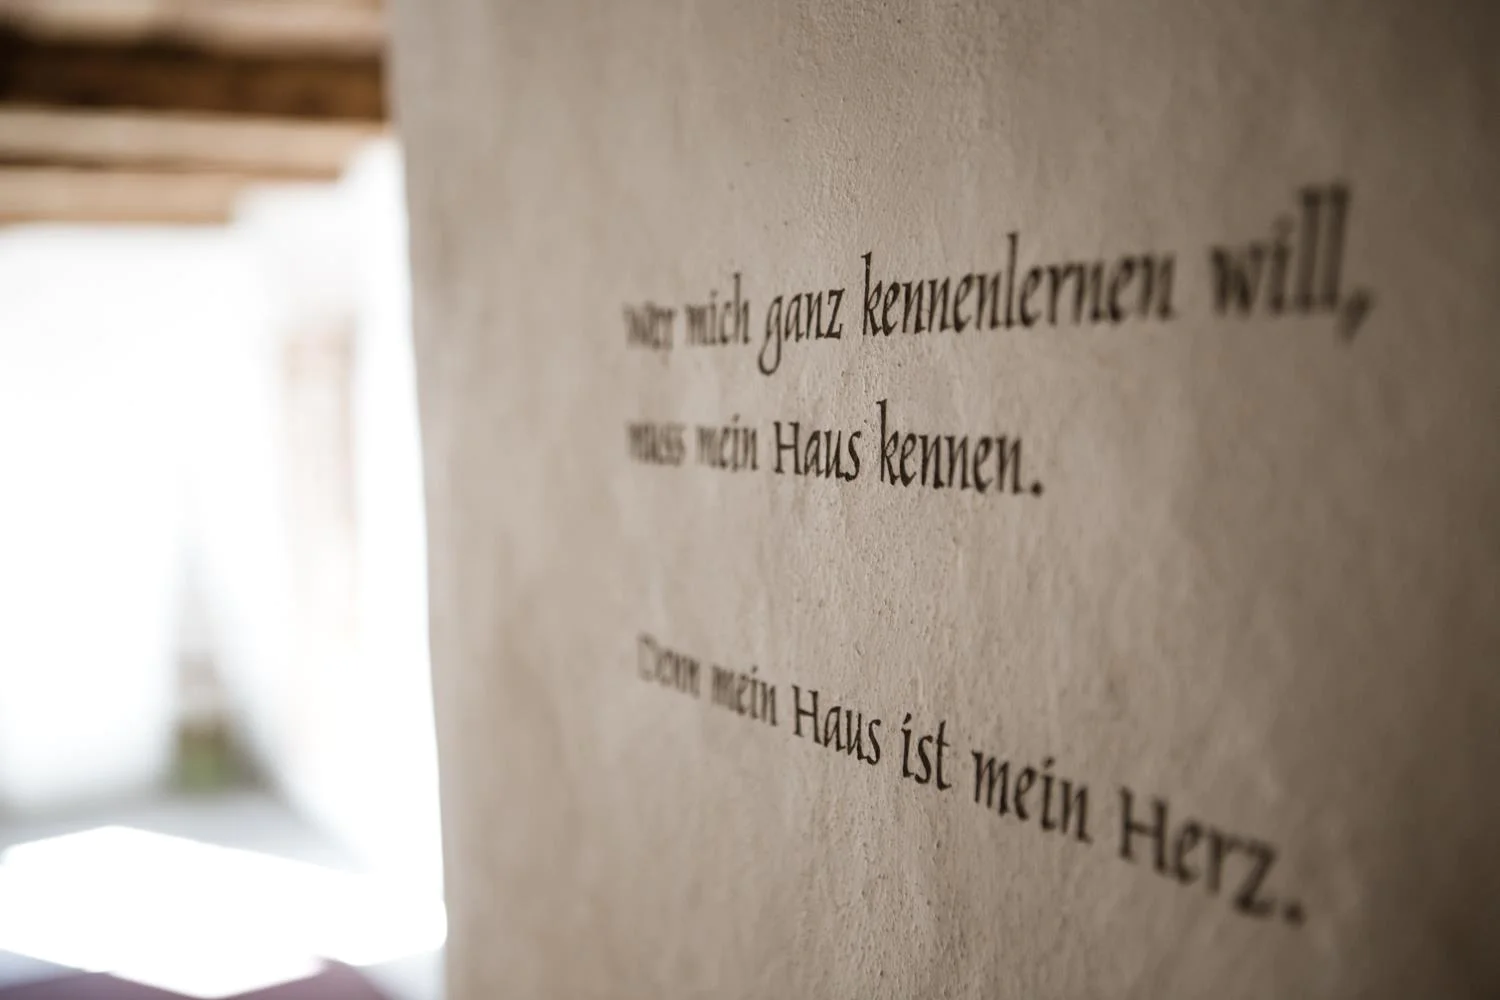 wer mich ganz kennenlernen will,
muss mein Haus kennen.
Denn mein Haus ist mein Herz.